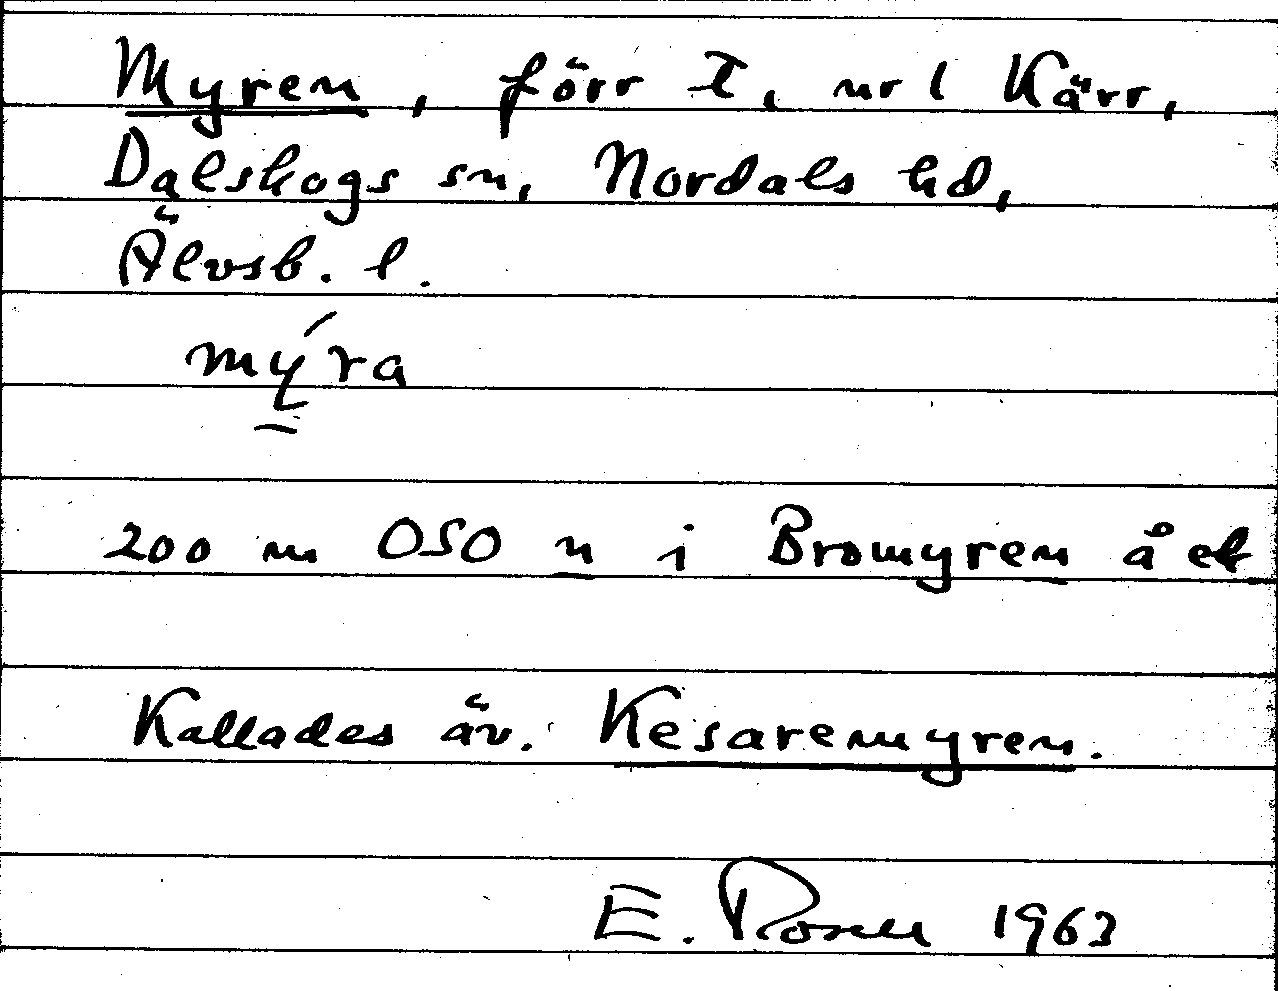 Myren, förr t, nr 1 Kärr,
Dalskogs sn, Nordals hd,
Älvsb. l.
mýra
200 m OSO n i Bromyren å ek
Kallades äv. Kesaremyren.
E. Rosell 1963